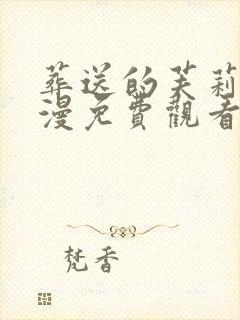 葬送的芙莉
漫免費觀看
梵香